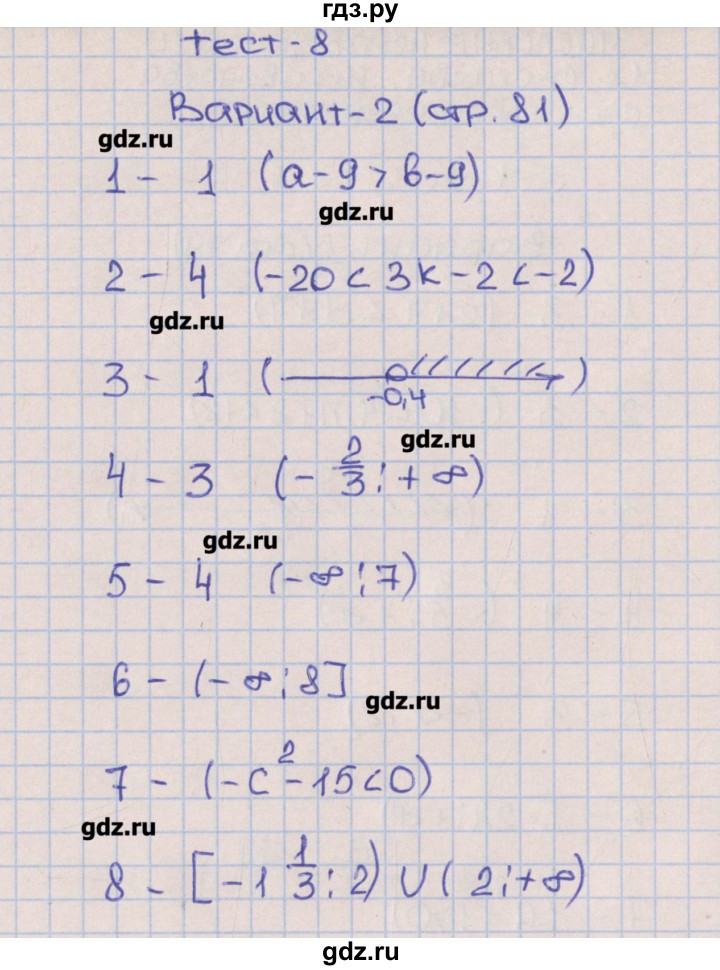 гдз.ру
тест-8
Вариант-2 (стр. 81)
gdz.ru
1 - 1 (a-9 > b-9)
gdz.ru
2 - 4 (-20 < 3k - 2 < -2)
gdz.ru
3 - 1 ( -0,4 )
gdz.ru
4 - 3 (- 2/3 ; + ∞)
gdz.ru
5 - 4 (-∞ ; 7)
6 - (-∞ ; 8]
gdz.ru
7 - (-c² - 15 < 0)
gdz.ru
8 - [-1 1/3 ; 2) ∪ ( 2 ; +∞)
gdz.ru